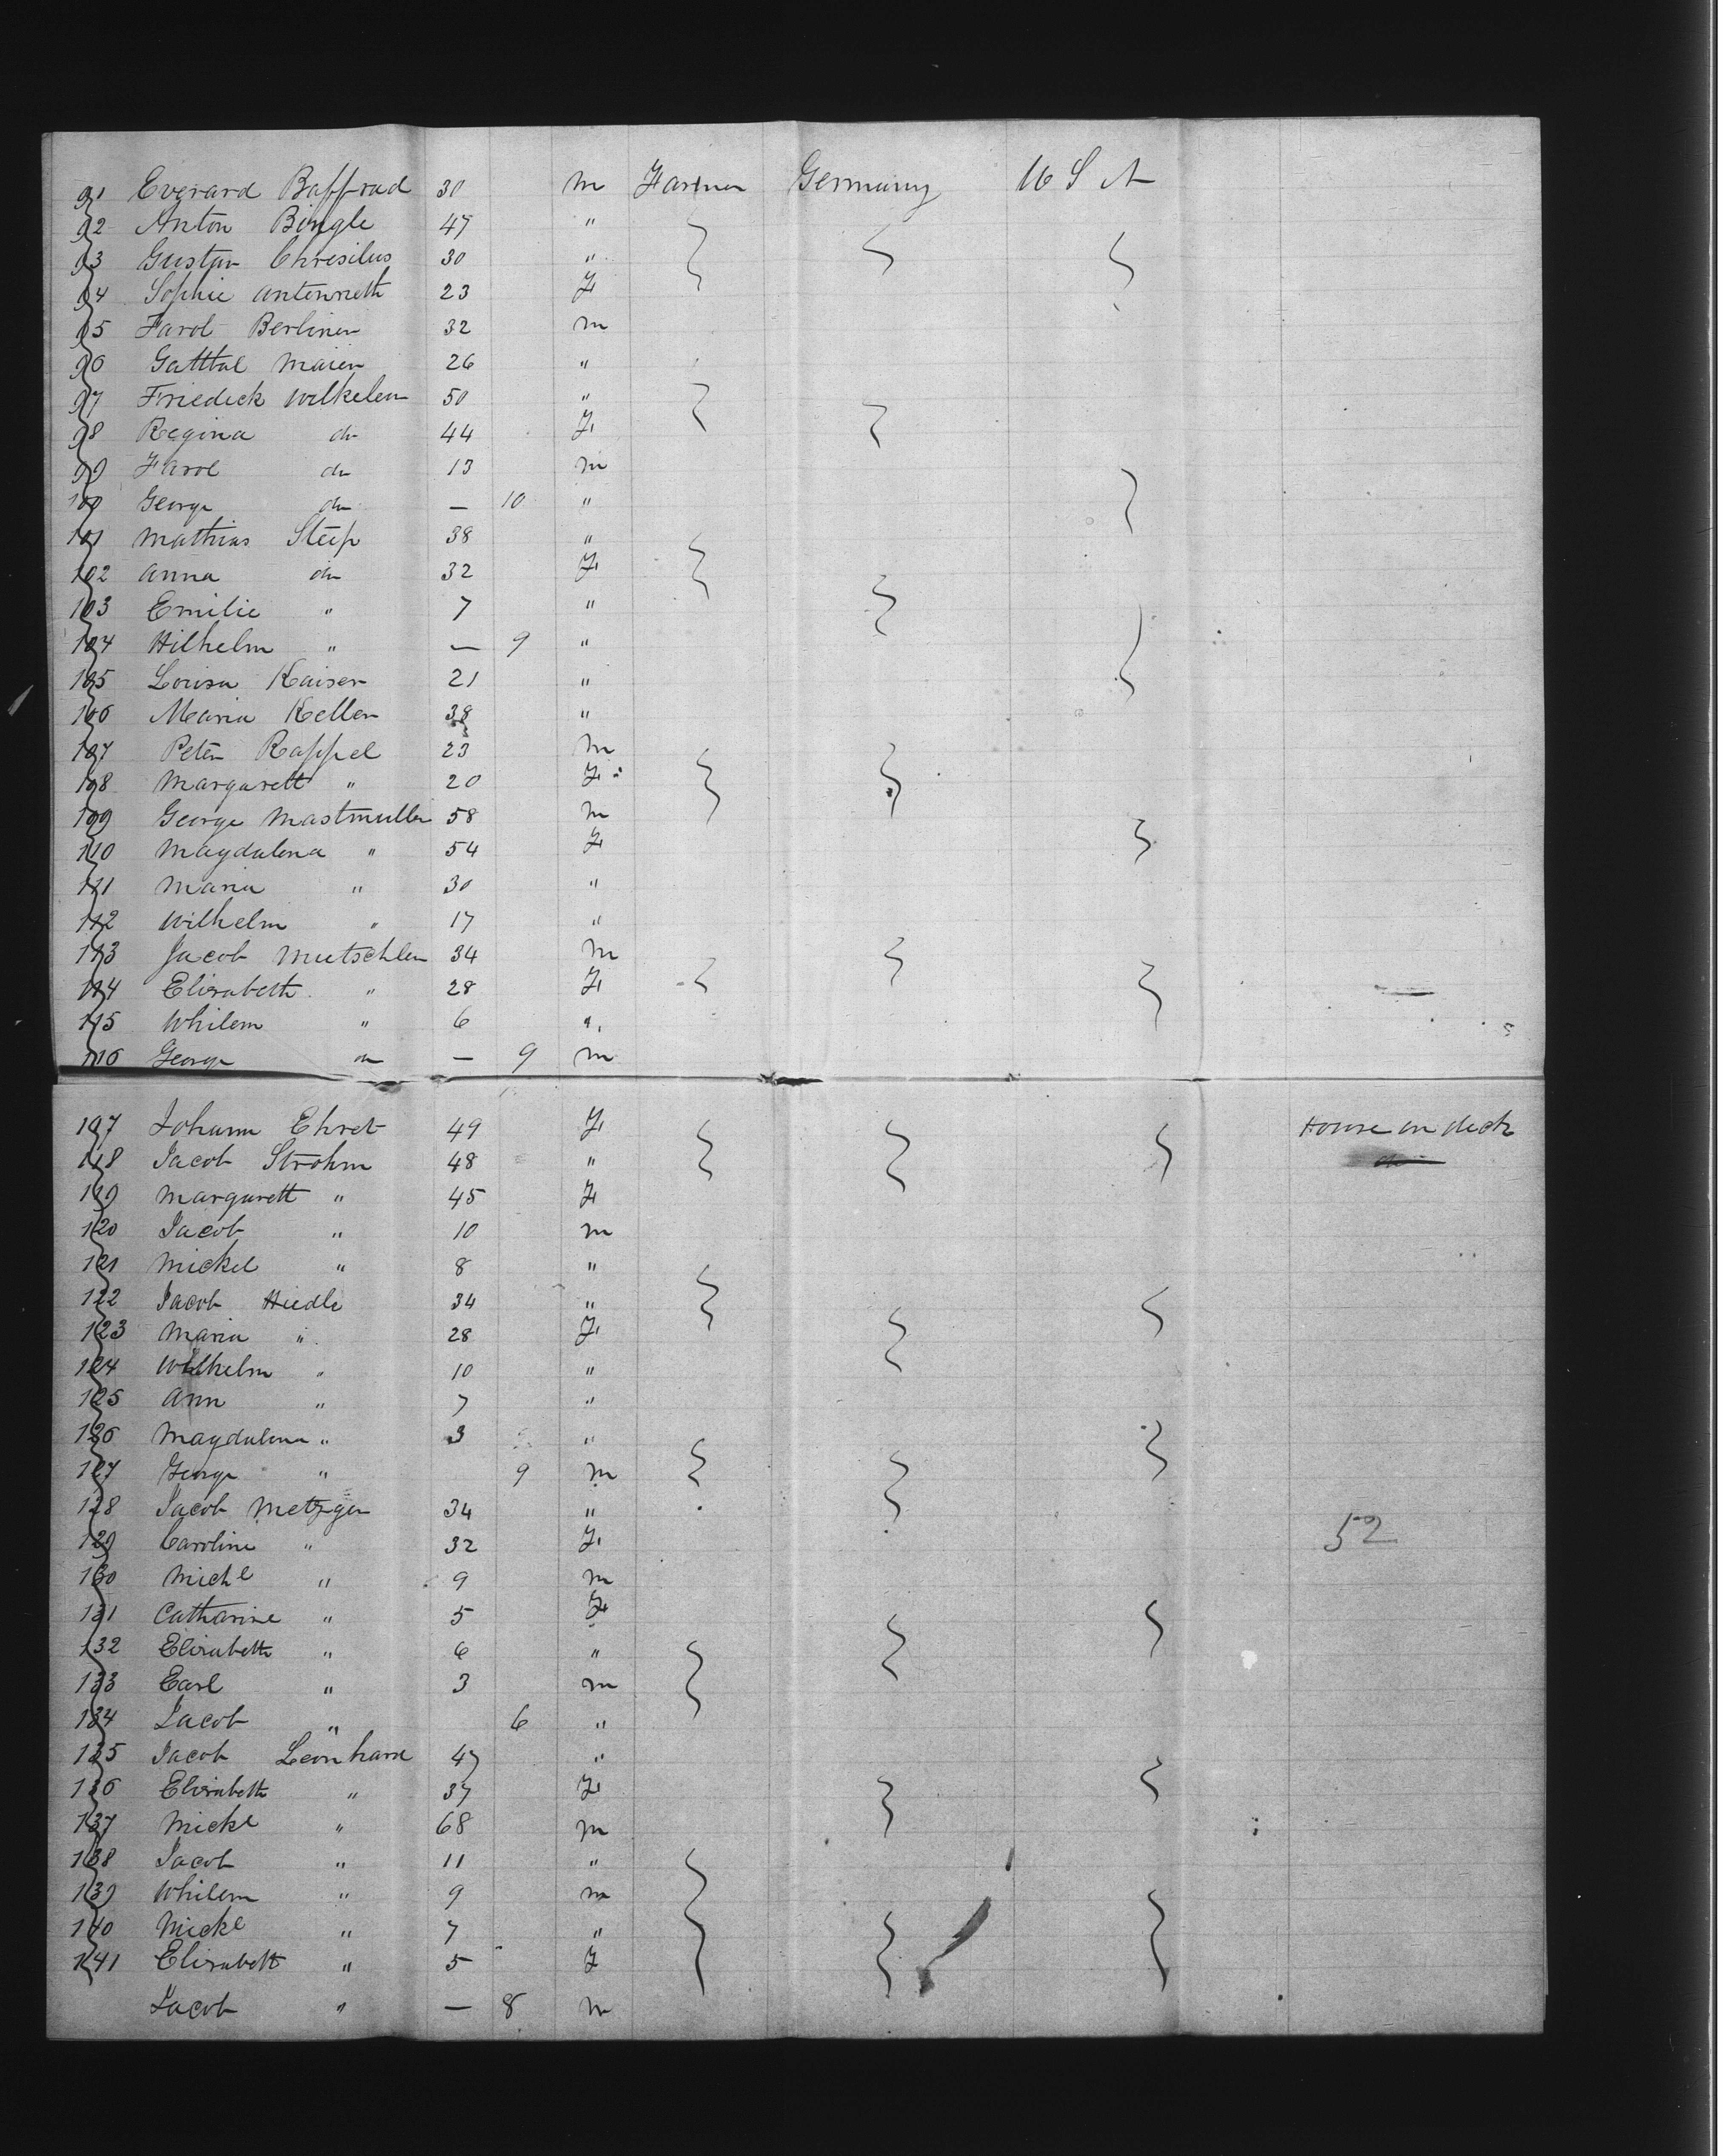 91 Everard Baffrad 30 m Farmer Germany U S A
92 Anton Bingle 47 m "
93 Gustav Chresilus 30 "
94 Sophie Antenrieth 23 F
95 Farol Berliner 32 m
96 Gatttal Maier 26 "
97 Friedeck Wilkelem 50 "
98 Regina do 44 F
99 Farol do 13 m
100 George do — 10 "
101 Mathias Steip 38 "
102 Anna do 32 F
103 Emilie " 7 "
104 Hilhelm " — 9 "
105 Lovisa Kaiser 21 "
106 Maria Keller 38 "
107 Peter Rappel 23 m
108 Margarett " 20 F
109 George Mastmuller 58 m
110 Magdalena " 54 F
111 Maria " 30 "
112 Wilhelm " 17 "
113 Jacob Mutschler 34 m
114 Elisabeth " 28 F
115 Whilem " 6 "
116 George do — 9 m
117 Johann Ehret 49 F House on deck
118 Jacob Strohm 48 "
119 Margarett " 45 F
120 Jacob " 10 m
121 Mickel " 8 "
122 Jacob Hiedle 34 "
123 Maria " 28 F
124 Wilhelm " 10 "
125 Ann " 7 "
126 Magdalena " 3 "
127 George " 9 m
128 Jacob Metzger 34 "
129 Caroline " 32 F
52
130 Michl " 9 m
131 Catharine " 5 F
132 Elisabeth " 6 "
133 Earl " 3 m
134 Jacob " 6 "
135 Jacob Leonhard 47 "
136 Elisabeth " 37 F
137 Mickl " 68 m
138 Jacob " 11 "
139 Whilem " 9 m
140 Mickl " 7 "
141 Elisabett " 5 F
Jacob " — 8 m